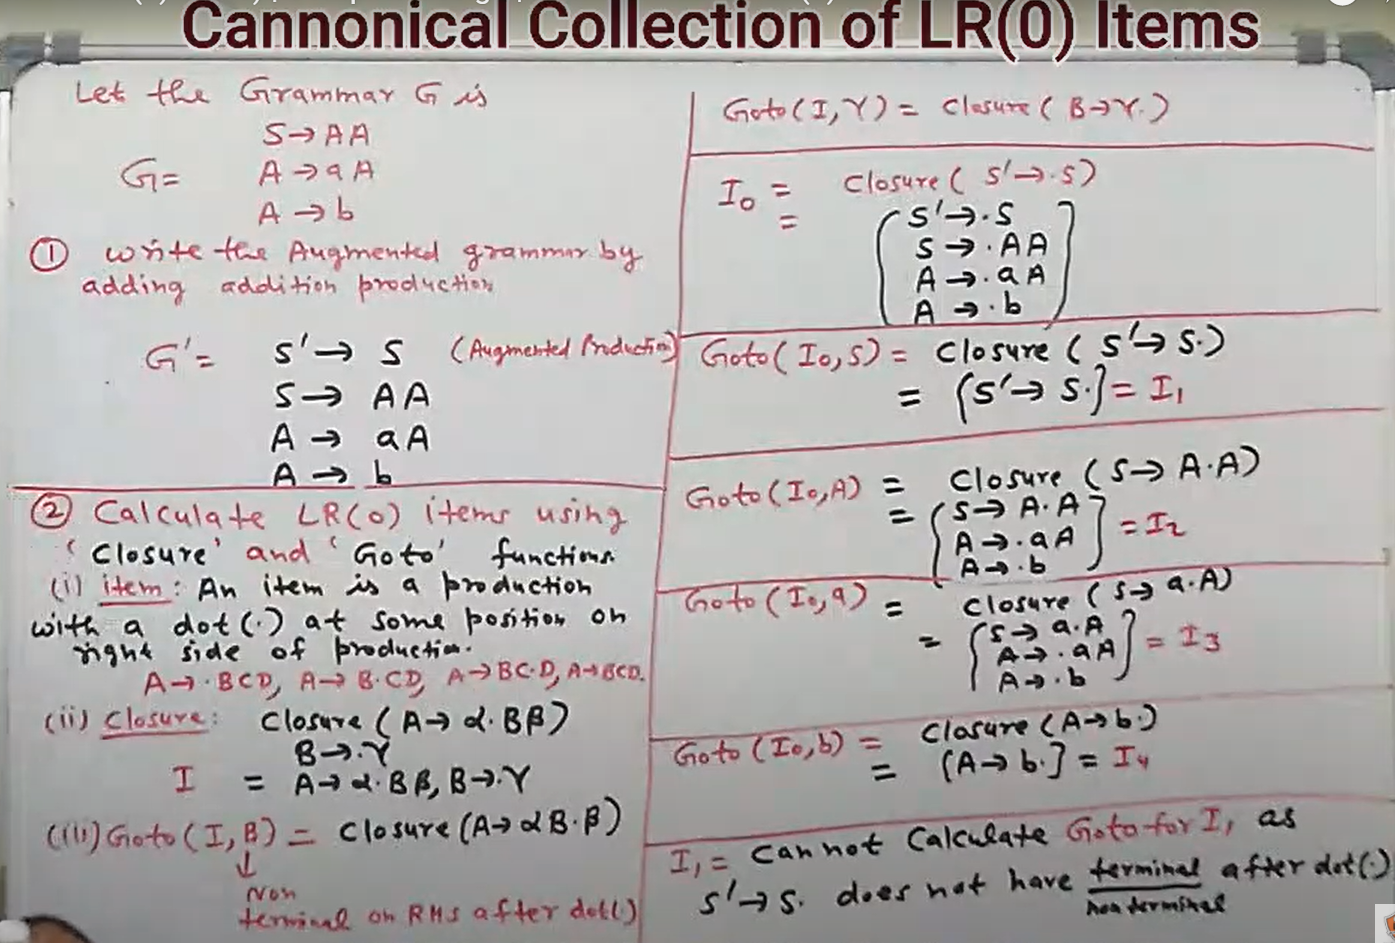 Cannonical Collection of LR(0) Items
Let the Grammar G is
S→AA
G= A→aA
A→b
① write the Augmented grammar by
adding addition production
G'= S'→ S (Augmented Production)
S→ AA
A→ aA
A→ b
② Calculate LR(0) items using
'Closure' and 'Goto' functions.
(i) item: An item is a production
with a dot(.) at some position on
right side of production.
A→.BCD, A→B.CD, A→BC.D, A→BCD.
(ii) Closure: Closure(A→α.Bβ)
B→.γ
I = A→α.Bβ, B→.γ
(iii) Goto(I,B) = Closure(A→αB.β)
↓
Non
terminal on RHS after dot(.)
Goto(I,γ) = Closure(B→γ.)
I₀ = Closure(S'→.S)
= {S'→.S
S→.AA
A→.aA
A→.b}
Goto(I₀,S) = Closure(S'→S.)
= {S'→S.} = I₁
Goto(I₀,A) = Closure(S→A.A)
= {S→A.A
A→.aA
A→.b} = I₂
Goto(I₀,a) = Closure(S→a.A)
= {S→a.A
A→.aA
A→.b} = I₃
Goto(I₀,b) = Closure(A→b.)
= {A→b.} = I₄
I₁ = Can not Calculate Goto for I₁ as
S'→S. does not have terminal after dot(.)
non terminal